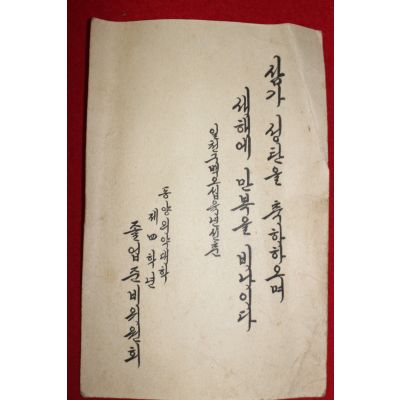 삼가 성탄을 축하하오며
새해에 만복을 비나이다
일천구백오십육년
동양의약대학
제四학년
졸업준비위원회